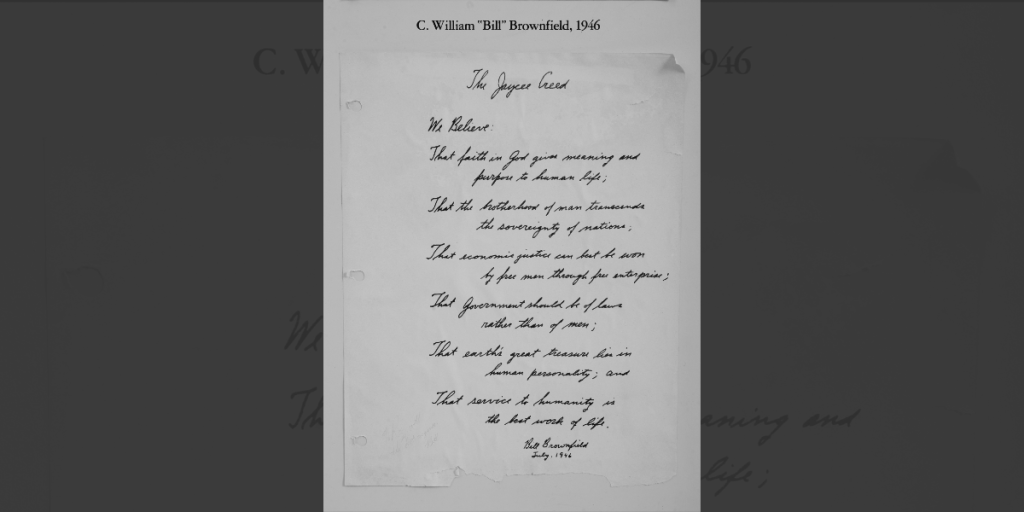 C. William "Bill" Brownfield, 1946
The Jaycee Creed
We Believe:
That faith in God gives meaning and
purpose to human life;
That the brotherhood of man transcends
the sovereignty of nations;
That economic justice can best be won
by free men through free enterprise;
That Government should be of laws
rather than of men;
That earth's great treasure lies in
human personality; and
That service to humanity is
the best work of life.
Bill Brownfield
July, 1946